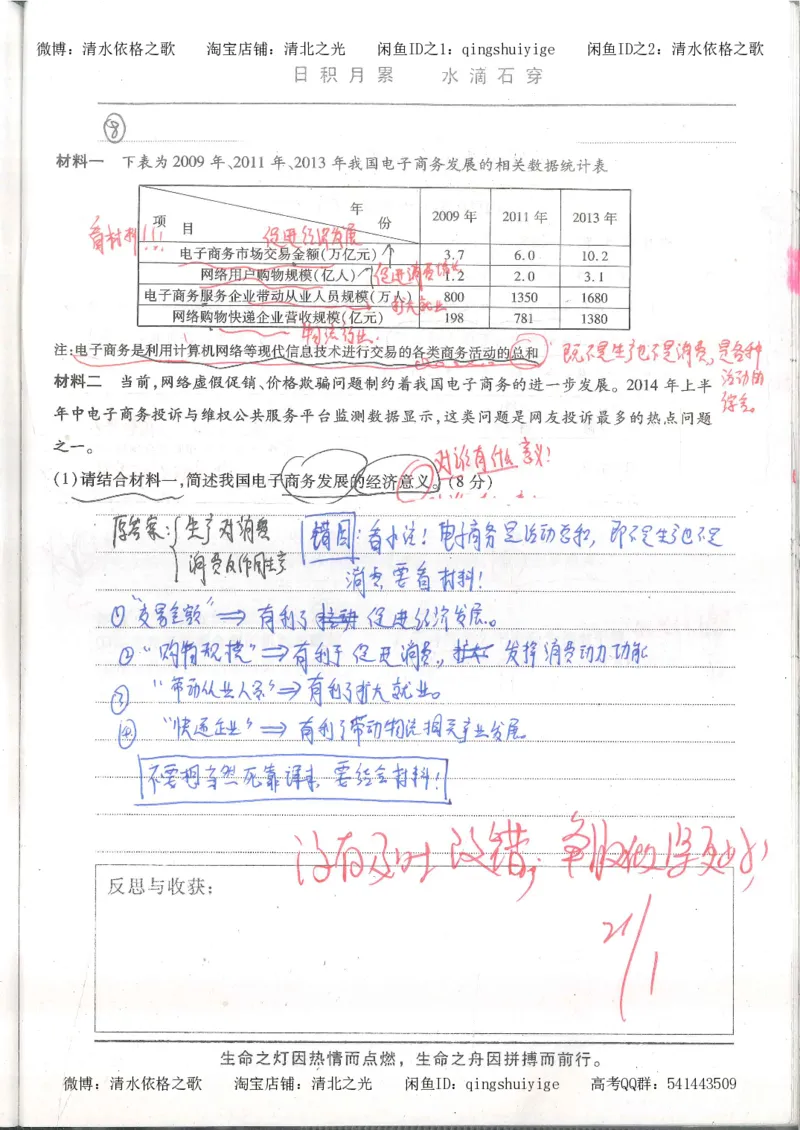 微博：清水依格之歌 淘宝店铺：清北之光 闲鱼ID之1：qingshuiyige 闲鱼ID之2：清水依格之歌
日积月累 水滴石穿
⑧
材料一 下表为 2009 年、2011 年、2013 年我国电子商务发展的相关数据统计表
年
项 份 2009 年 2011 年 2013 年
目
看材料!!! 促进经济发展
电子商务市场交易金额(万亿元) 3.7 6.0 10.2
网络用户购物规模(亿人) 促进消费 1.2 2.0 3.1
电子商务服务企业带动从业人员规模(万人) 扩大就业 800 1350 1680
网络购物快递企业营收规模(亿元) 198 781 1380
物流行业
注:电子商务是利用计算机网络等现代信息技术进行交易的各类商务活动的总和 既不是生产也不是消费,是各种
活动的
综合。
材料二 当前,网络虚假促销、价格欺骗问题制约着我国电子商务的进一步发展。2014 年上半
年中电子商务投诉与维权公共服务平台监测数据显示,这类问题是网友投诉最多的热点问题
之一。
对谁有什么意义!
(1)请结合材料一,简述我国电子商务发展的经济意义。(8 分)
原答案: 生产对消费
消费反作用生产
错因:看小注!电子商务是活动总和,即不是生产也不是
消费 要看材料!
①"交易金额"⇒有利于促进经济发展。
②"购物规模"⇒有利于促进消费, 发挥消费动力功能
③"带动从业人员"⇒有利于扩大就业。
④"快递企业"⇒有利于带动物流相关产业发展
不要想当然死靠课本 要结合材料!
没有及时改错;争取做得更好;
反思与收获:
21/1
生命之灯因热情而点燃，生命之舟因拼搏而前行。
微博：清水依格之歌 淘宝店铺：清北之光 闲鱼ID：qingshuiyige 高考QQ群：541443509